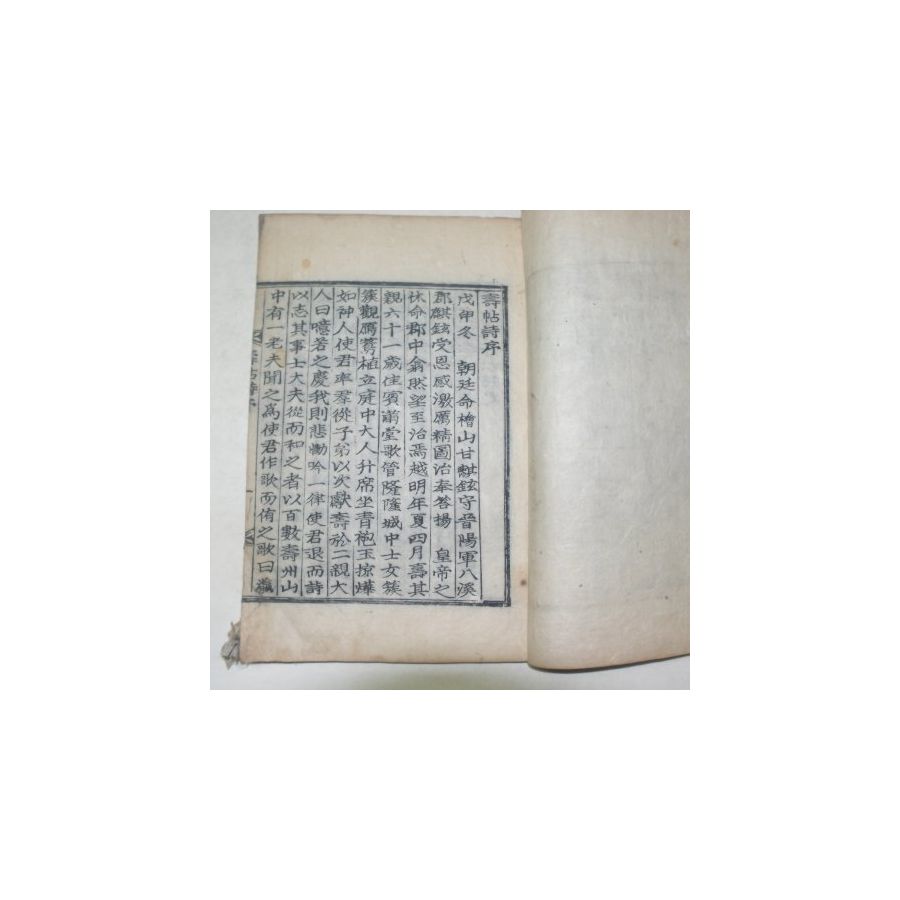 壽帖詩序
戊申冬 朝廷命檜山甘麒鉉守晉陽軍八溪
郡麒鉉受恩感激厲精圖治奉答揚 皇帝之
休命郡中翕然望至治焉越明年夏四月壽其
親六十一歲佳賓滿堂歌管隆隆城中士女簇
簇觀鴈鶩植立庭中大人升席坐青袍玉掠燁
如神人使君率羣從子弟以次獻壽於二親大
人曰噫若之慶我則悲慟吟一律使君退而詩
以志其事士大夫從而和之者以百數壽州山
中有一老夫聞之爲使君作歌而侑之歌曰
壽帖詩序